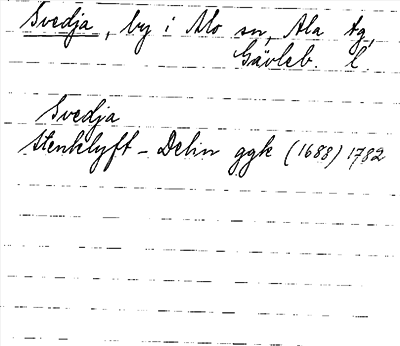 Svedja, by i Mo sn, Ala tg,
Gävleb. l.
Svedja
Stenklyft - Delin ggk (1688) 1782